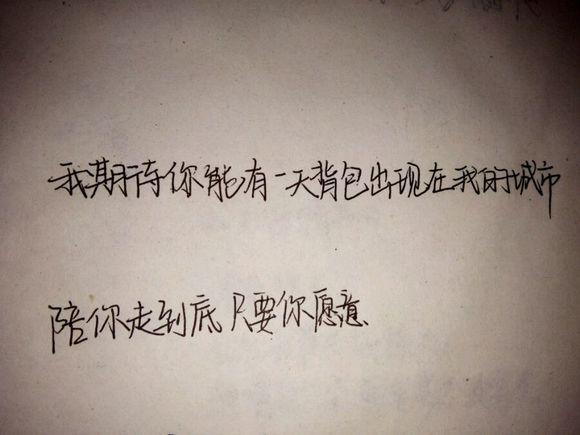 我期待你能有一天背包出现在我的城市
陪你走到底 只要你愿意